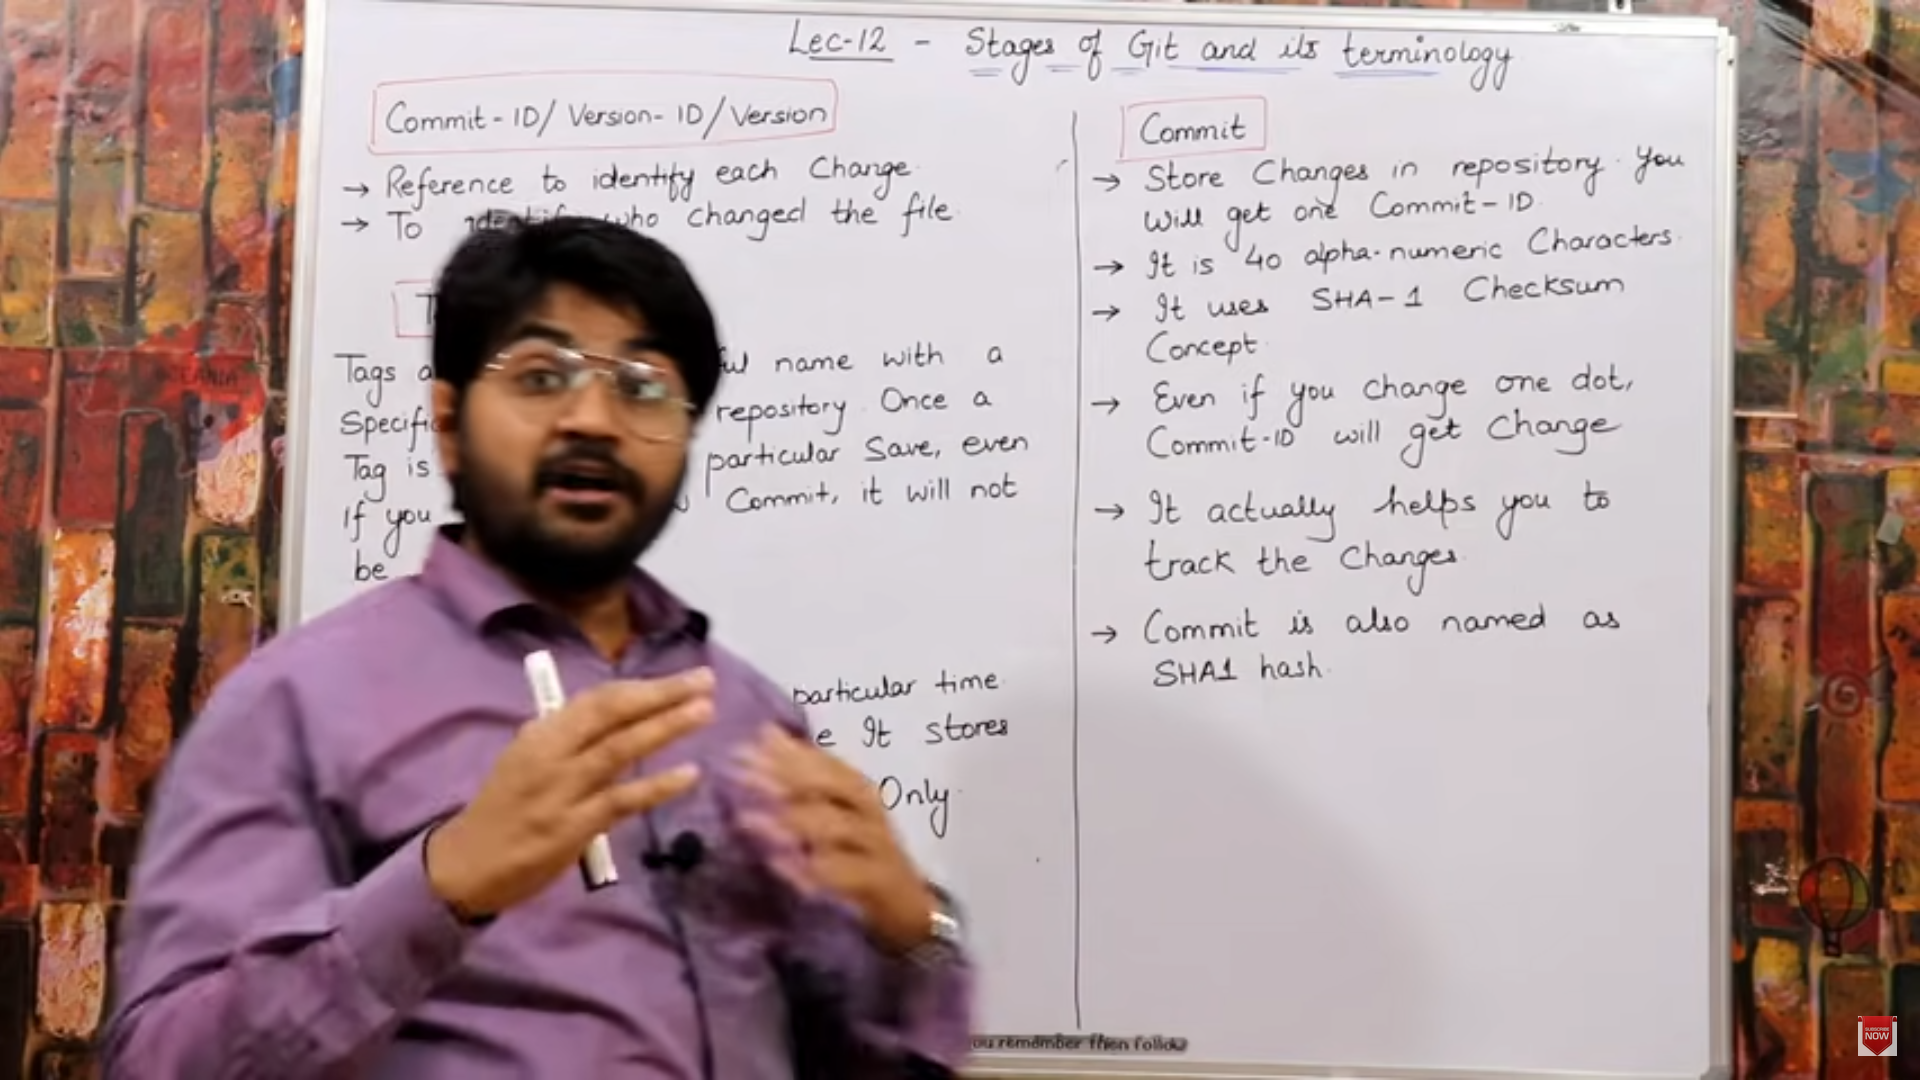 Lec-12 - Stages of Git and its terminology
Commit-ID/ Version-ID/Version
→ Reference to identify each Change.
→ To identify who changed the file.
Tags name with a
repository. Once a
Tag is particular Save, even
If you Commit, it will not
be
particular time.
It stores
Only.
Commit
→ Store Changes in repository. You
will get one Commit-ID.
→ It is 40 alpha-numeric Characters.
→ It uses SHA-1 Checksum
Concept.
→ Even if you change one dot,
Commit-ID will get Change
→ It actually helps you to
track the Changes.
→ Commit is also named as
SHA1 hash.
you remember then follow
SUBSCRIBE
NOW